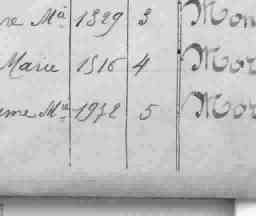 re Mie 1829 3 Mon
Marie 1816 4 Mor
eme Mie 1912 5 Mor